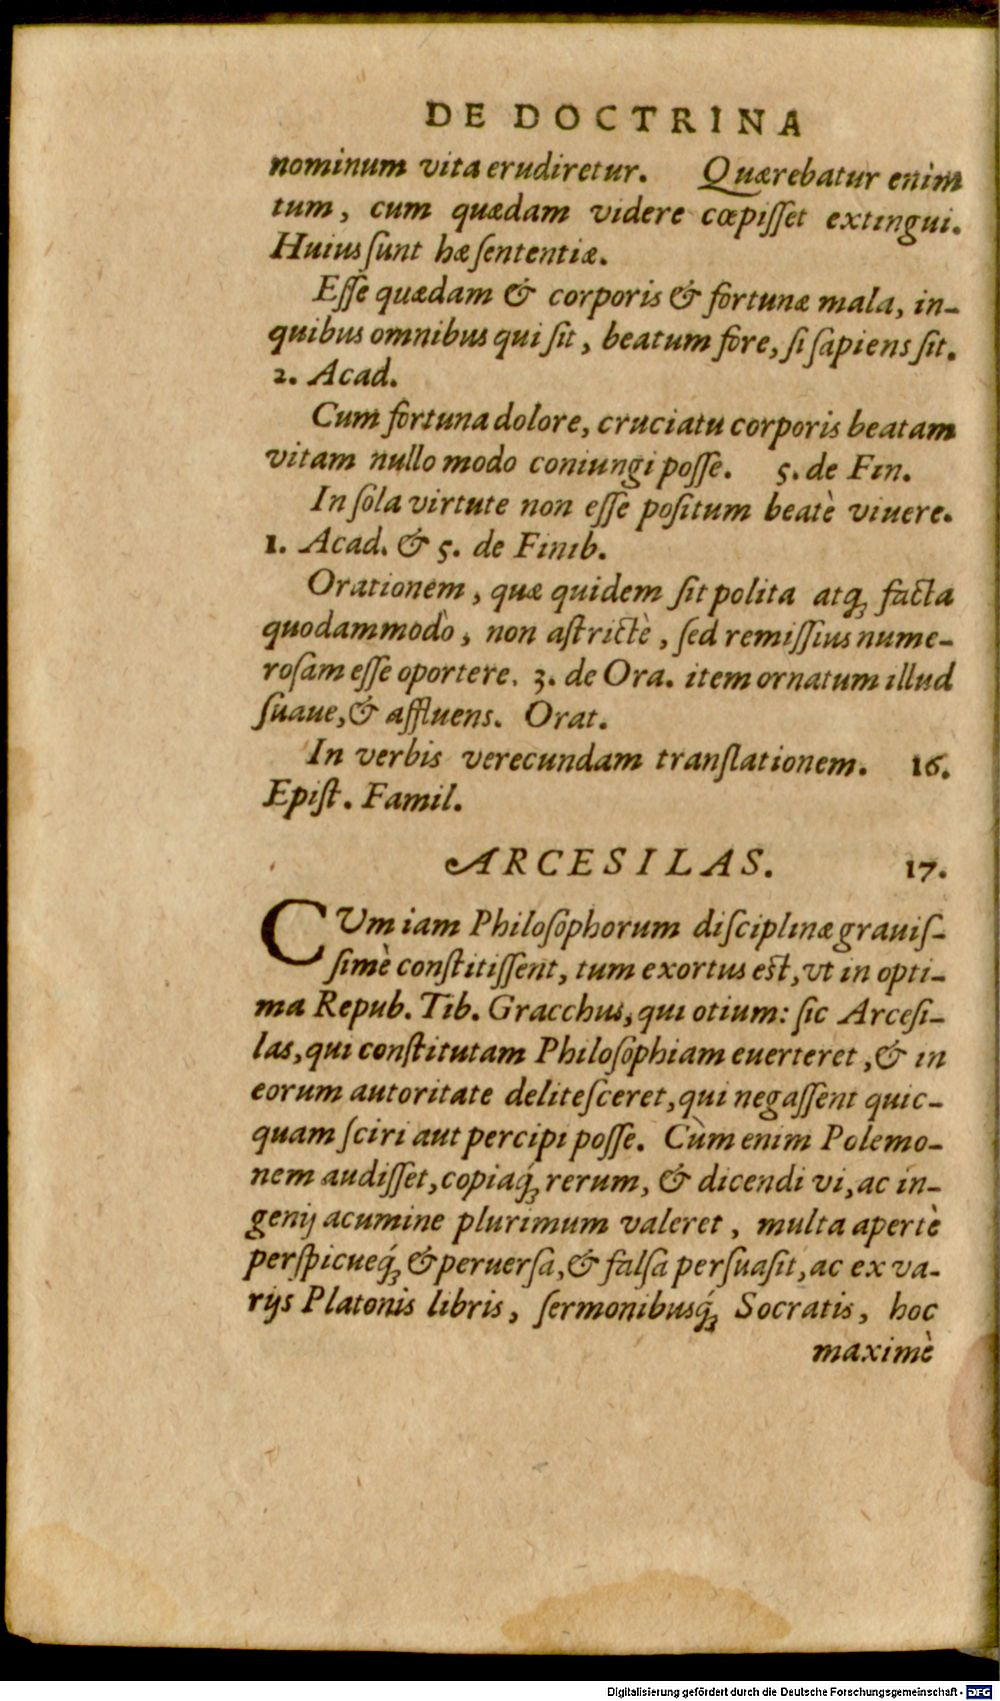 DE DOCTRINA
nominum vita erudiretur. Quærebatur enim
tum, cum quædam videre cœpiſſet extingui.
Huius ſunt hæ ſententiæ.
Eſſe quædam & corporis & fortunæ mala, in-
quibus omnibus qui ſit, beatum fore, ſi ſapiens ſit.
2. Acad.
Cum fortuna dolore, cruciatu corporis beatam
vitam nullo modo coniungi poſſe. 5. de Fin.
In ſola virtute non eſſe poſitum beatè viuere.
1. Acad. & 5. de Finib.
Orationem, quæ quidem ſit polita atq; facta
quodammodò, non aſtrictè, ſed remiſſius nume-
roſam eſſe oportere. 3. de Ora. item ornatum illud
ſuaue, & affluens. Orat.
In verbis verecundam tranſlationem. 16.
Epiſt. Famil.
ARCESILAS. 17.
CVm iam Philoſophorum diſciplinæ grauiſ-
ſimè conſtitiſſent, tum exortus eſt, vt in opti-
ma Repub. Tib. Gracchus, qui otium: ſic Arceſi-
las, qui conſtitutam Philoſophiam euerteret, & in
eorum autoritate deliteſceret, qui negaſſent quic-
quam ſciri aut percipi poſſe. Cùm enim Polemo-
nem audiſſet, copiaq́; rerum, & dicendi vi, ac in-
genij acumine plurimum valeret, multa apertè
perſpicueq́; & peruerſa, & falſa perſuaſit, ac ex va-
rijs Platonis libris, ſermonibusq́; Socratis, hoc
maximè
Digitalisierung gefördert durch die Deutsche Forschungsgemeinschaft - DFG